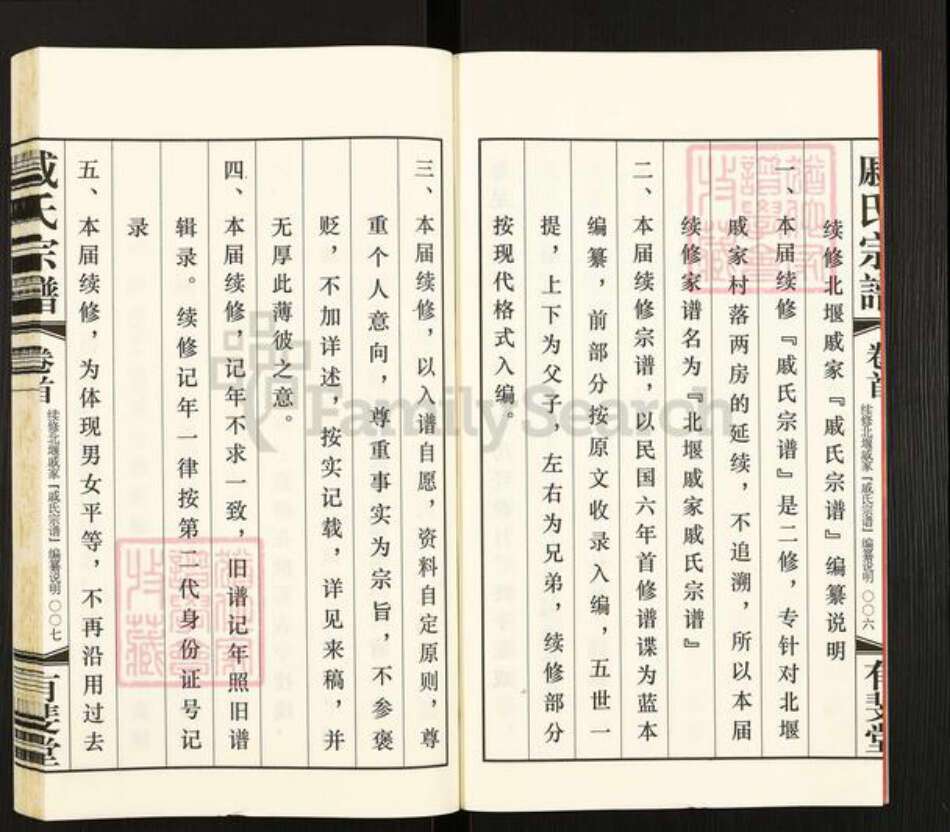 戚氏宗谱
卷首
续修北堰戚家『戚氏宗谱』编纂说明
〇〇六
有斐堂
续修北堰戚家『戚氏宗谱』编纂说明
一、本届续修『戚氏宗谱』是二修，专针对北堰
戚家村落两房的延续，不追溯，所以本届
续修家谱名为『北堰戚家戚氏宗谱』
二、本届续修宗谱，以民国六年首修谱谍为蓝本
编纂，前部分按原文收录入编，五世一
提，上下为父子，左右为兄弟，续修部分
按现代格式入编。
三、本届续修，以入谱自愿，资料自定原则，尊
重个人意向，尊重事实为宗旨，不参褒
贬，不加详述，按实记载，详见来稿，并
无厚此薄彼之意。
四、本届续修，记年不求一致，旧谱记年照旧谱
辑录。续修记年一律按第二代身份证号记
录
五、本届续修，为体现男女平等，不再沿用过去
戚氏宗谱
卷首
续修北堰戚家『戚氏宗谱』编纂说明
〇〇七
有斐堂
FamilySearch